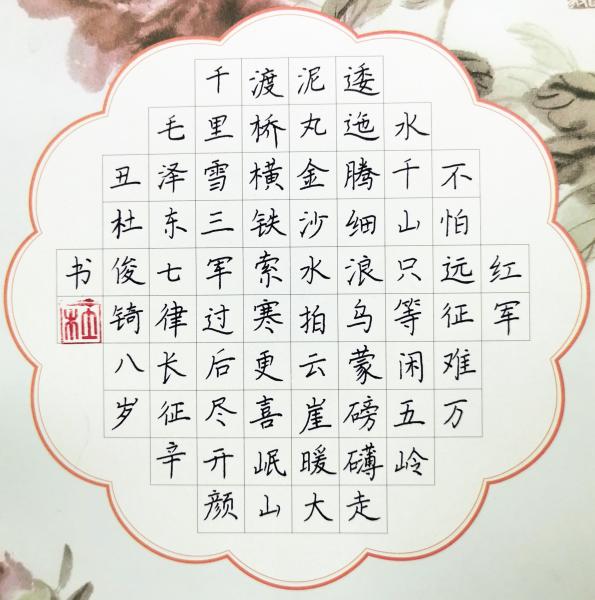 红军
不怕远征难万
水千山只等闲五岭
逶迤腾细浪乌蒙磅礴走
泥丸金沙水拍云崖暖大
渡桥横铁索寒更喜岷山
千里雪三军过后尽开颜
毛泽东七律长征辛
丑杜俊锜八岁
书
杜